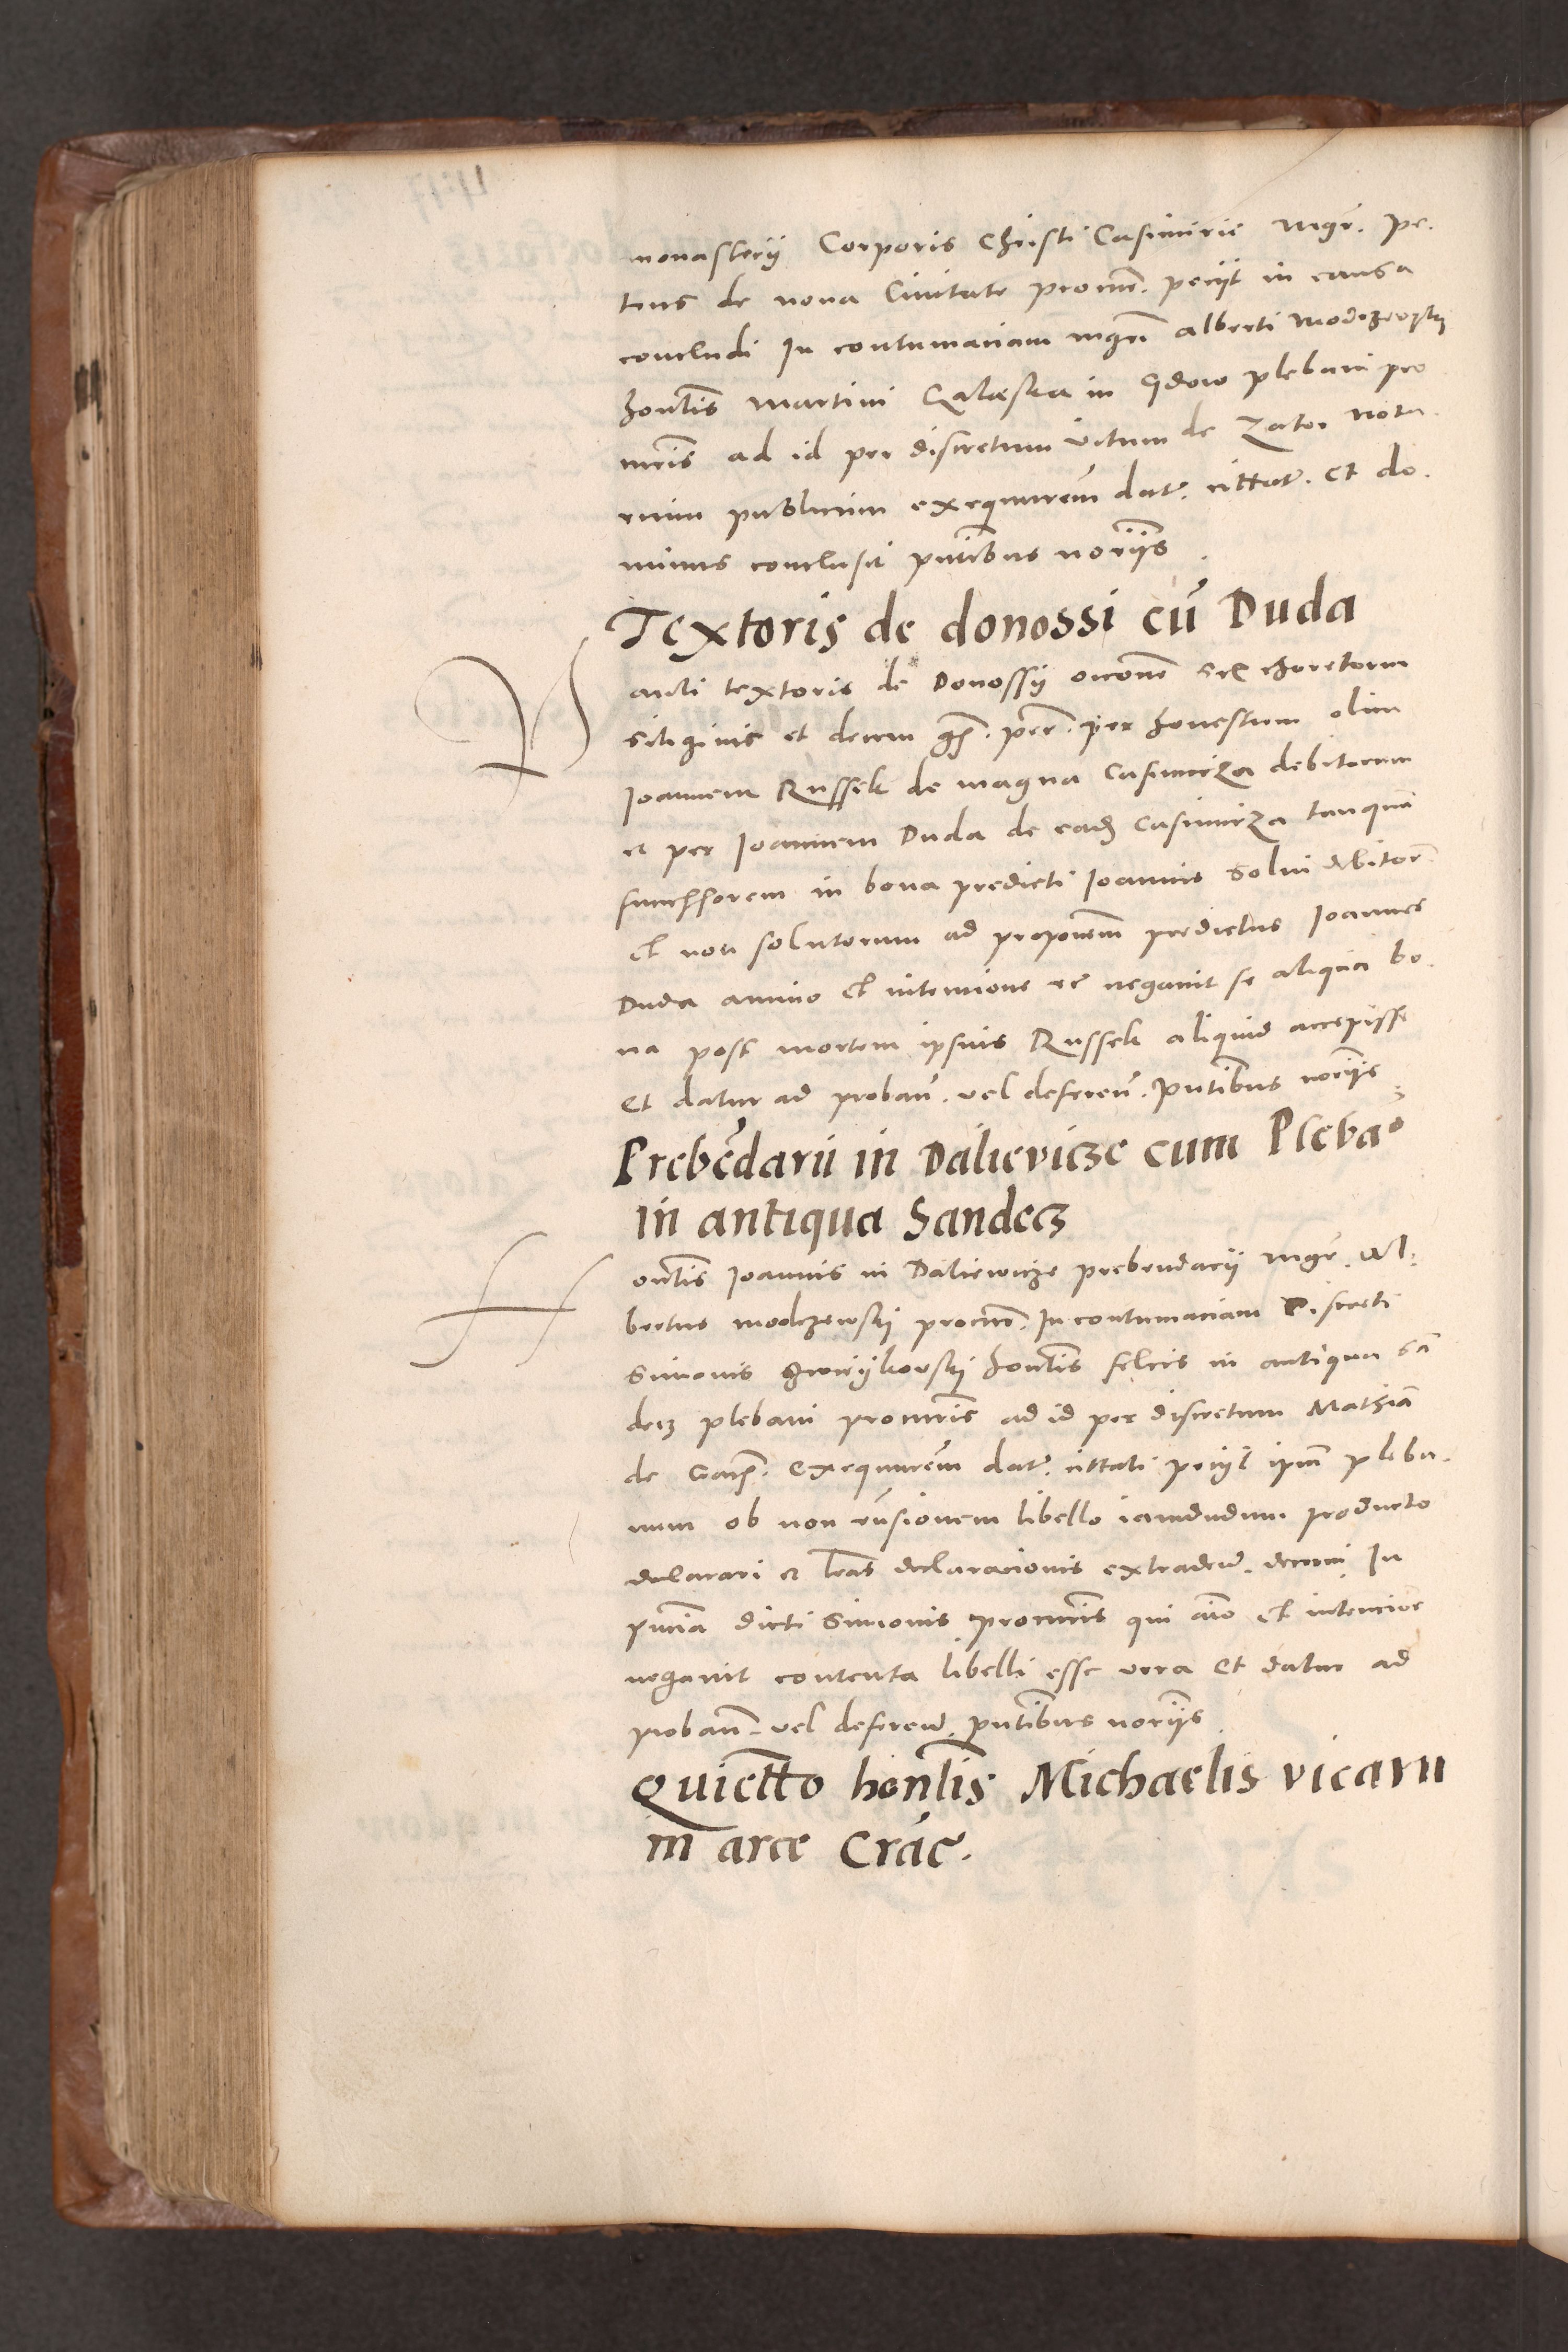 monasterij Corporis Christi Casimirie mgr. Pe.
trus de nova Civitate procur. petijt in causa
concludi In contumaciam mgri Alberti Modrzewsky
honlis Martini in Gdow plebani pro
curis ad id per discretum Vitum de Zator nota
rium publicum exequucrem dat. cittat. Et do.
minus conclusit pntibus norijs.
Textoris de donossi cū Duda
Pauli textoris de Donossy sex choretorum
siliginis et decem grs. per honestum olim
Joannem Russek de magna Casimirza debitorum
et per Joannem Duda de ead Casimirza tanquā
successorem in bona predicti Joannis solui debitor
et non solutorum ad proponem predictus Joannes
Duda animo et intencione rc negauit se aliqua bo.
na post mortem ipsius Russek aliquid accepisse
et datur ad proban. vel deferen. pntibus norijs
Prebēdarii in Daliewicze cum Pleba°
in antiqua Sandecz
Honlis Joannis in Daliewicze prebendarij mgr. Al.
bertus Modrzewskj procur. In contumaciam Discreti
Simonis honlis Felicis in antiqua Sā
decz plebani procuris ad id per discretum Mathiā
de exequucrem dat. cittati petijt ipm pleba.
num ob non rūsionem libello iamdudum producto
declarari et lras declaracionis extraden. decerni. In
pncia dicti Simonis procuris qui aīo et intencioe
negauit contenta libelli esse vera et datur ad
proban. vel deferen. pntibus norijs
Quietto honlis Michaelis vicarii
in arce Crac.